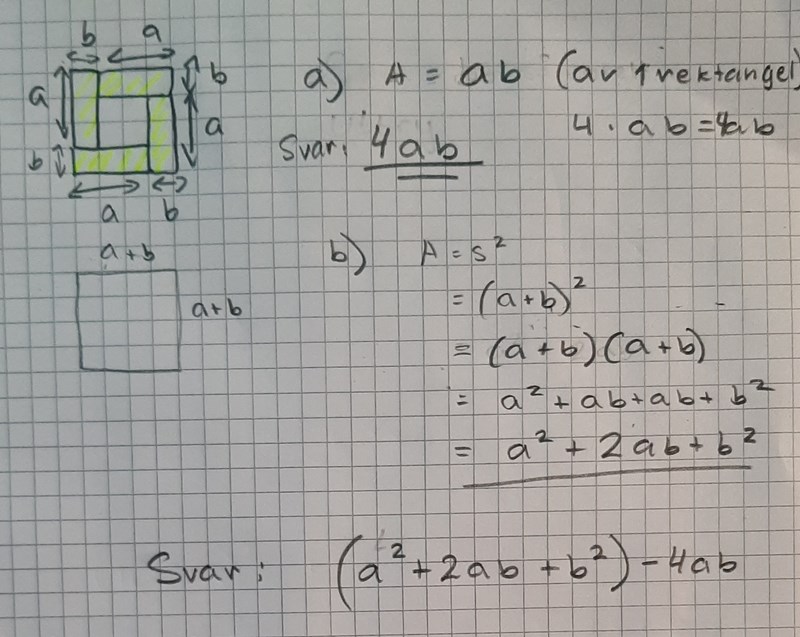 b a
a b
a
b
a b
a) A = ab (av 1 rektangel)
4 · ab = 4ab
Svar: 4ab
a+b
a+b
b) A = s²
= (a+b)²
= (a+b)(a+b)
= a² + ab + ab + b²
= a² + 2ab + b²
Svar: (a² + 2ab + b²) - 4ab